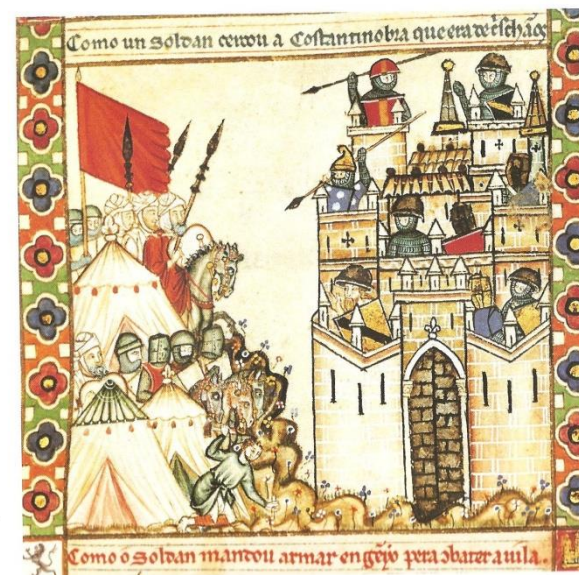 Como un Soldan cercou a Costantinobra que era de crischãos
Como o Soldan mandou armar engẽyo pera cõbater a uila.